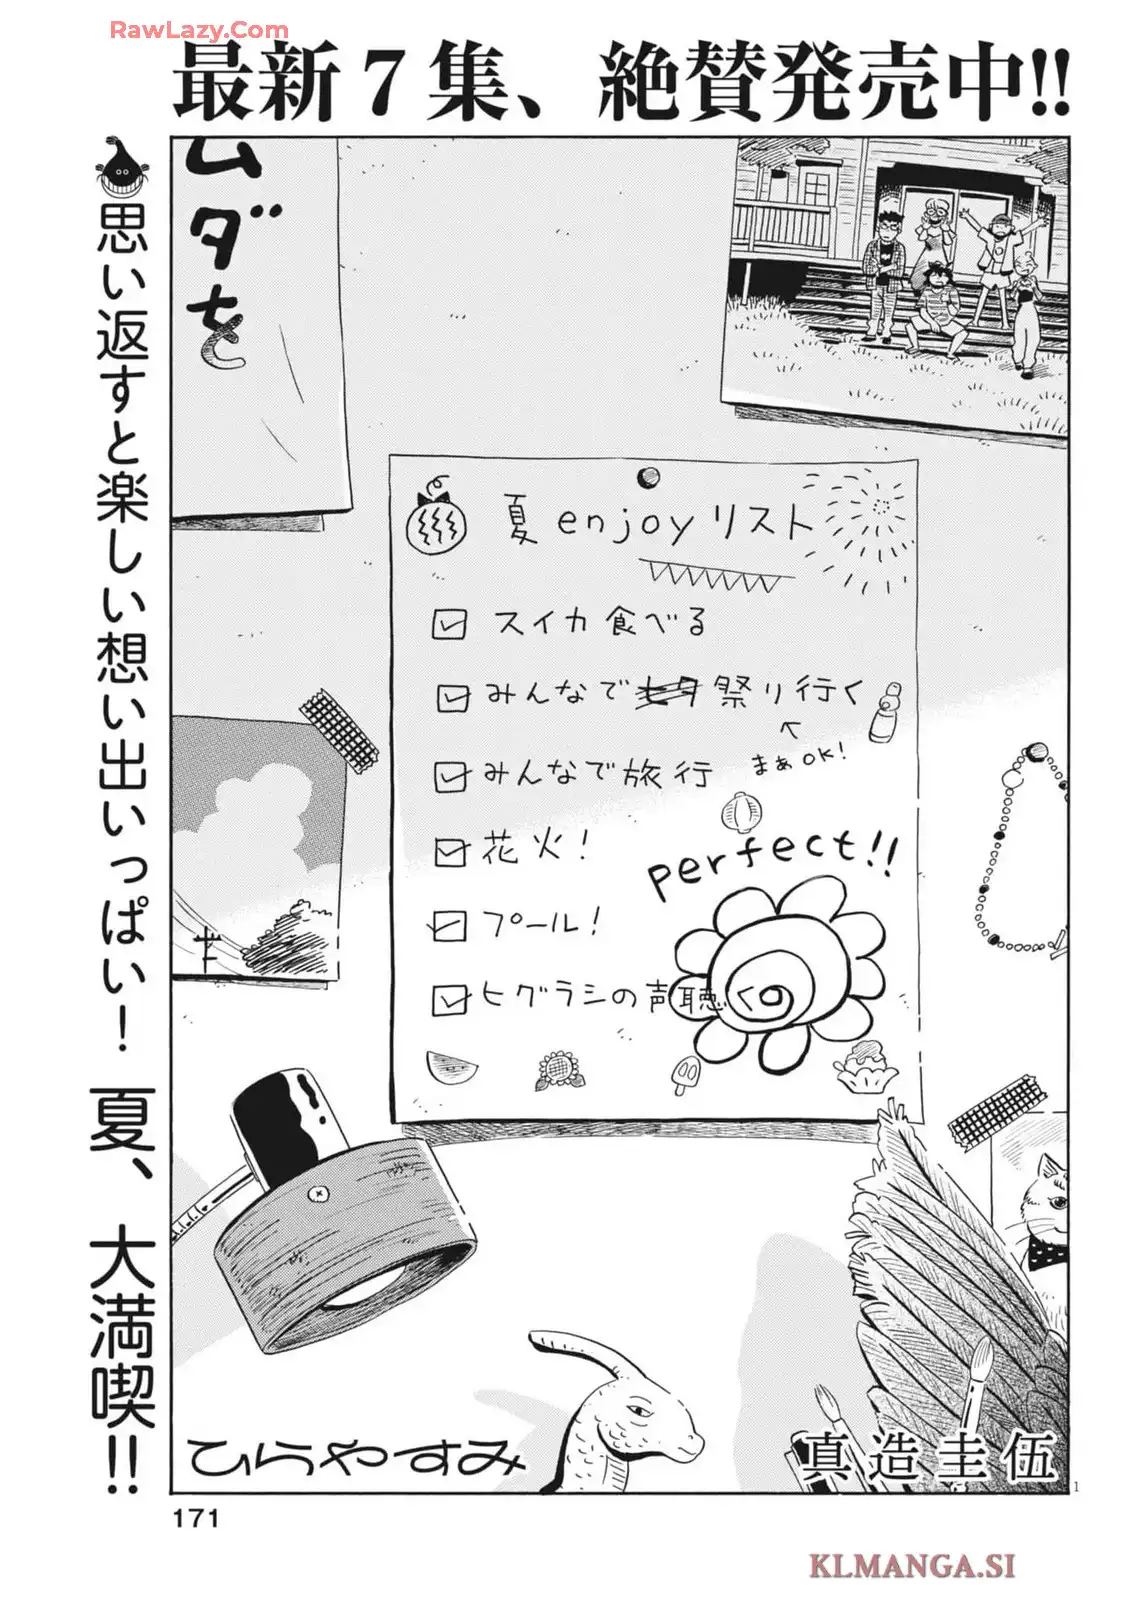 RawLazy.Com
最新7集、絶賛発売中!!
思い返すと楽しい想い出いっぱい!夏、大満喫!!
ムダを
夏enjoyリスト
スイカ食べる
みんなで七夕祭り行く
まぁOK!
みんなで旅行
花火!
perfect!!
プール!
ヒグラシの声聴く
ひらやすみ
真造圭伍
1
171
KLMANGA.SI